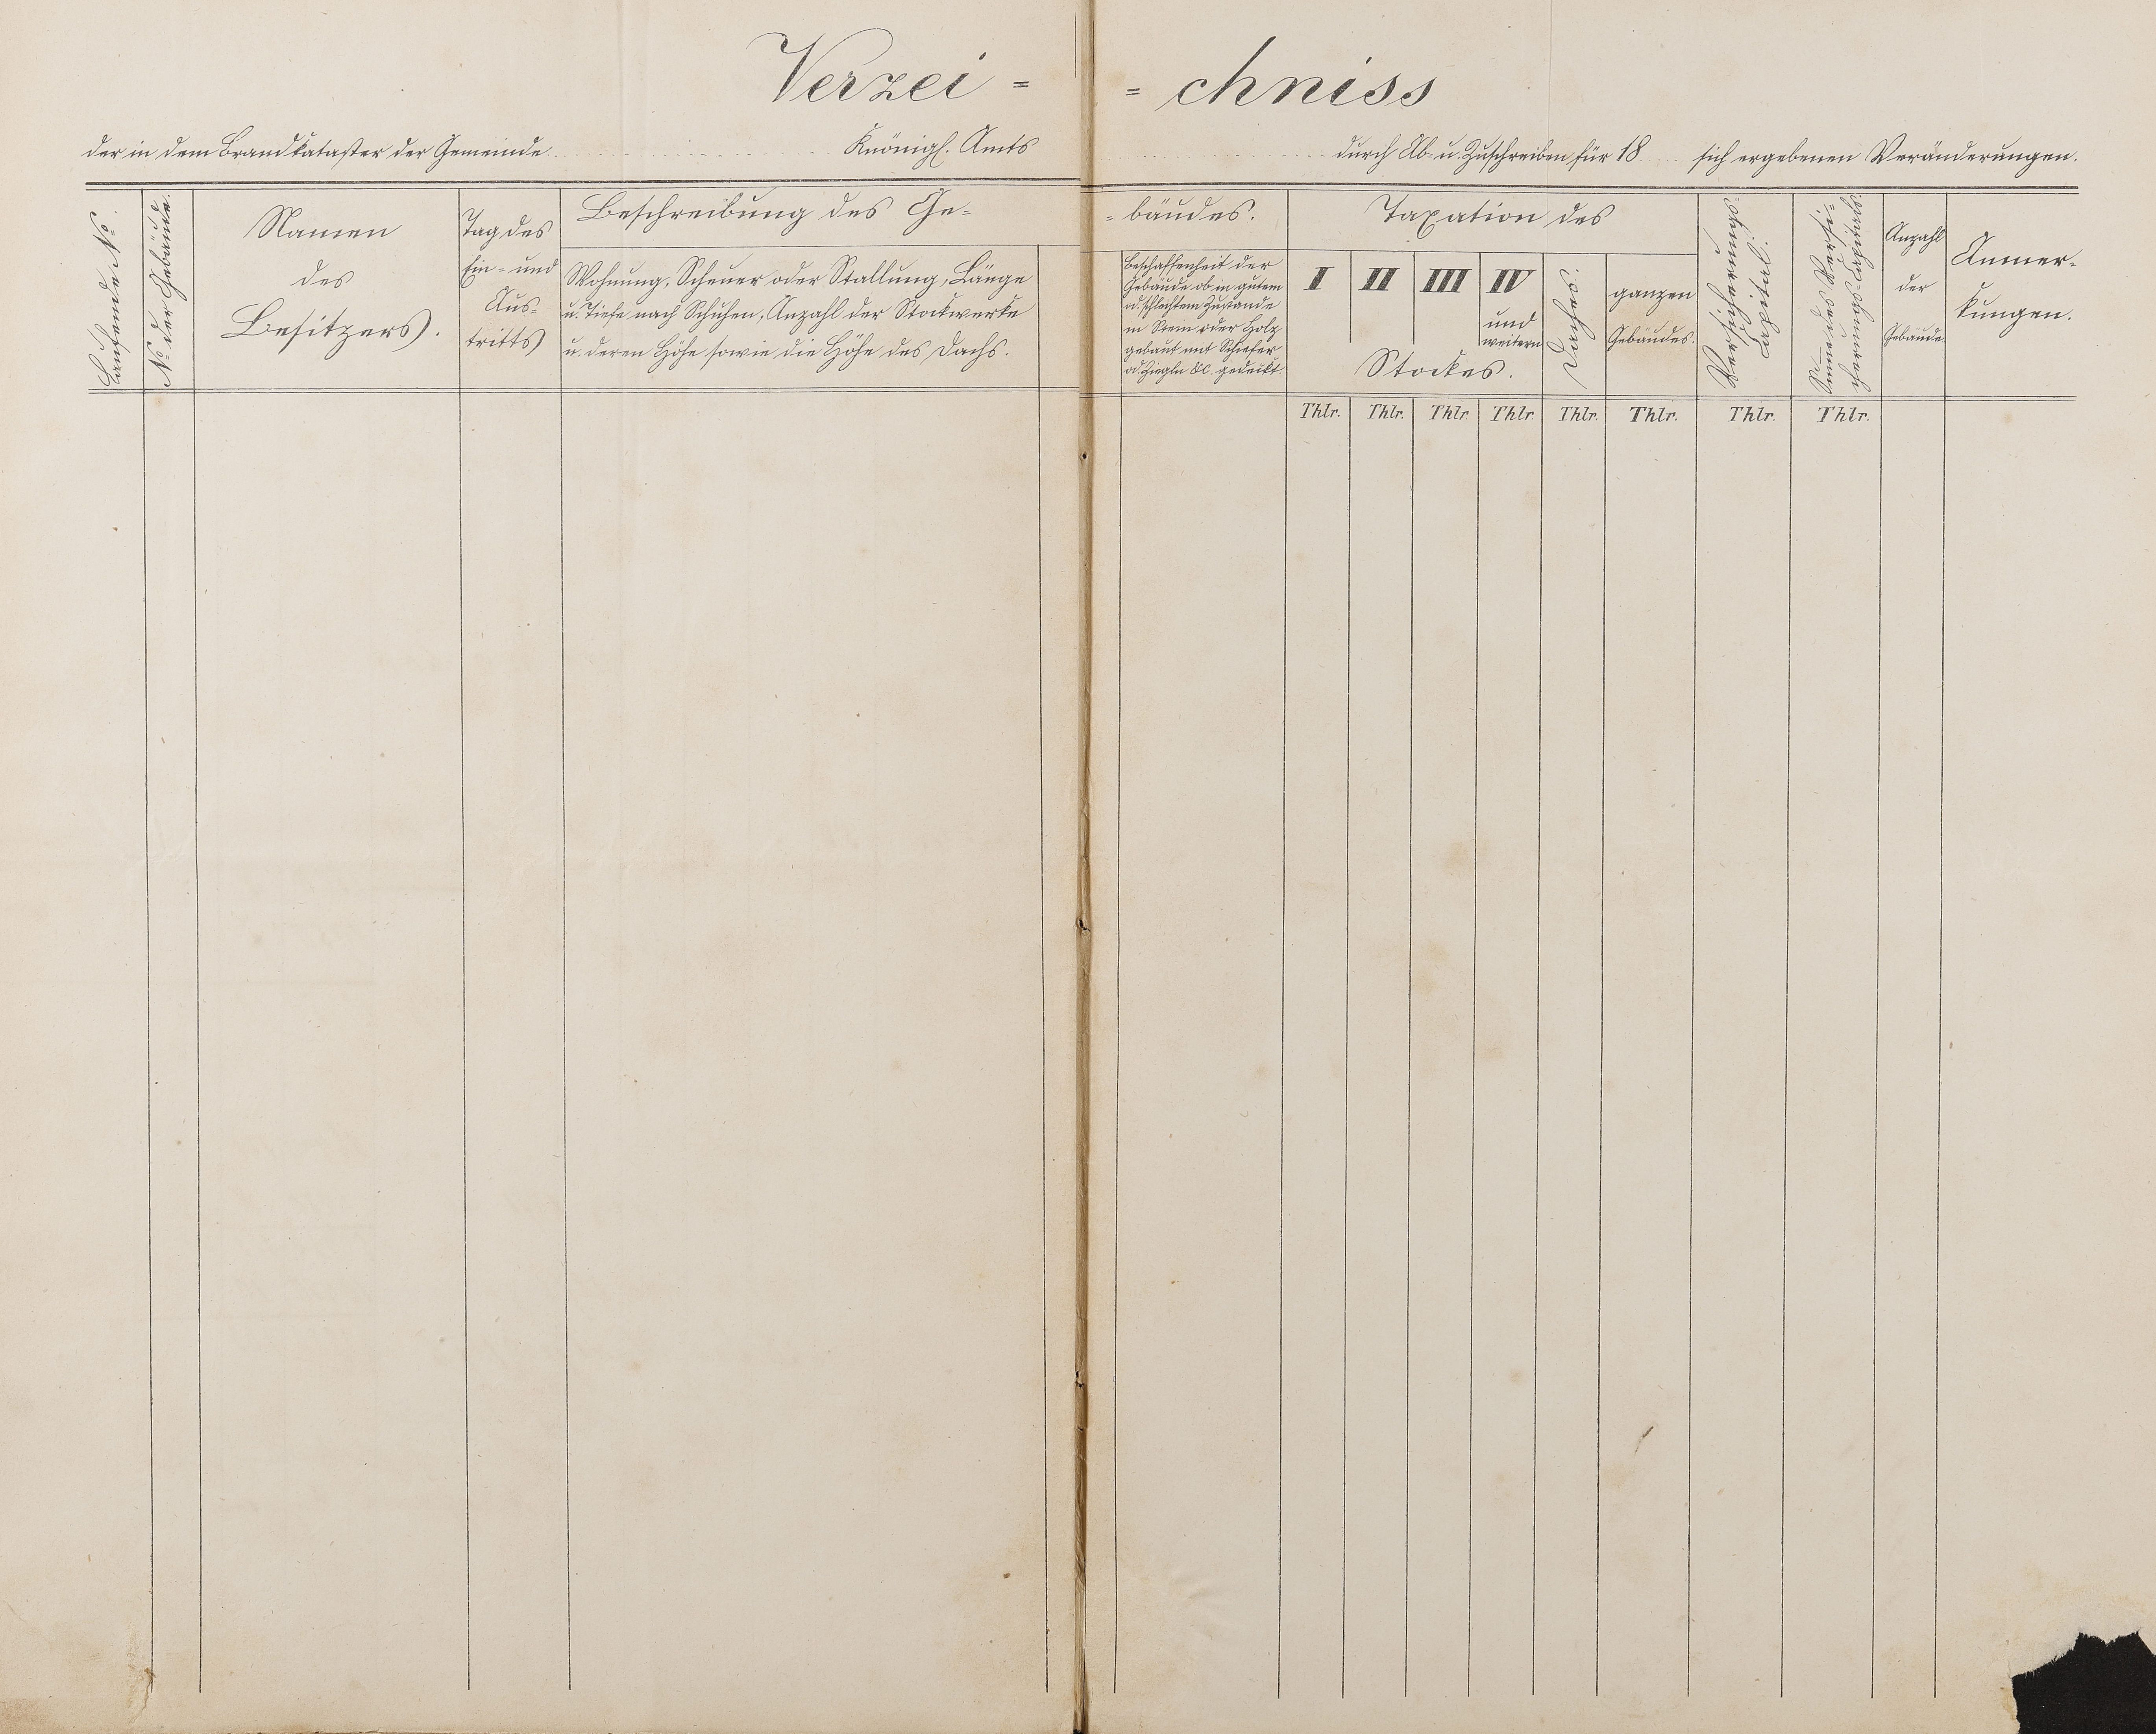 Verzei = = chniss
der in dem Brandkataster der Gemeinde Knönigl. Amts durch Ab- u. Zuschreiben für 18 sich ergebenen Veränderungen.
Laufende No.
No. der Gebäude.
Namen
des
Besitzers.
Tag des
Ein- und
Aus-
tritts
Beschreibung des Ge- - bäudes.
Wohnung, Scheuer oder Stallung, Länge
u. Tiefe nach Schuhen, Anzahl der Stockwerke
u. deren Höhe sowie die Höhe des Dachs.
Beschaffenheit der
Gebäude ob in gutem
od. schlechtem Zustande
in Stein oder Holz
gebaut mit Schiefer
od. Ziegln &c. gedeckt
Taxation des
I II III IV
und
weitern
Stockes.
Daches.
ganzen
Gebäudes.
Versicherungs-
Capital.
Summe des Versi-
cherungs-Capitals.
Anzahl
der
Gebäude
Anmer-
kungen.
Thlr. Thlr. Thlr. Thlr. Thlr. Thlr. Thlr. Thlr.